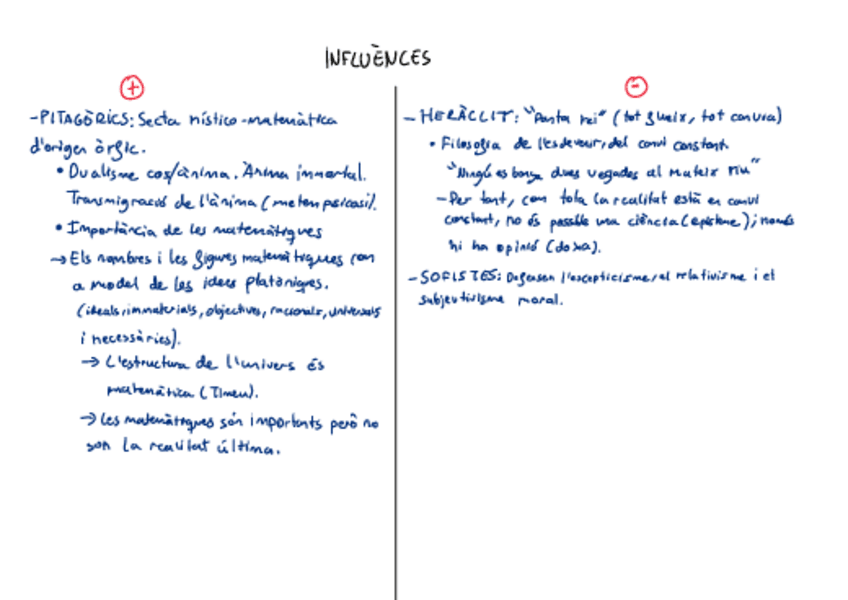 INFLUÈNCES
+
-PITAGÒRICS: Secta místico-matemàtica
d'origen òrfic.
• Dualisme cos/ànima. Ànima immortal.
Transmigració de l'ànima (metempsicosi).
• Importància de les matemàtiques
→ Els nombres i les figures matemàtiques com
a model de les idees platòniques.
(ideals, immaterials, objectives, racionals, universals
i necessàries).
→ L'estructura de l'univers és
matemàtica (Timeu).
→ Les matemàtiques són importants però no
son la realitat última.
-
- HERÀCLIT: "Panta rei" (tot flueix, tot canvia)
• Filosofia de l'esdevenir, del canvi constant.
"Ningú es banya dues vegades al mateix riu"
- Per tant, com tota la realitat està en canvi
constant, no és possible una ciència (episteme); només
hi ha opinió (doxa).
- SOFISTES: Defensen l'escepticisme, el relativisme i el
subjectivisme moral.